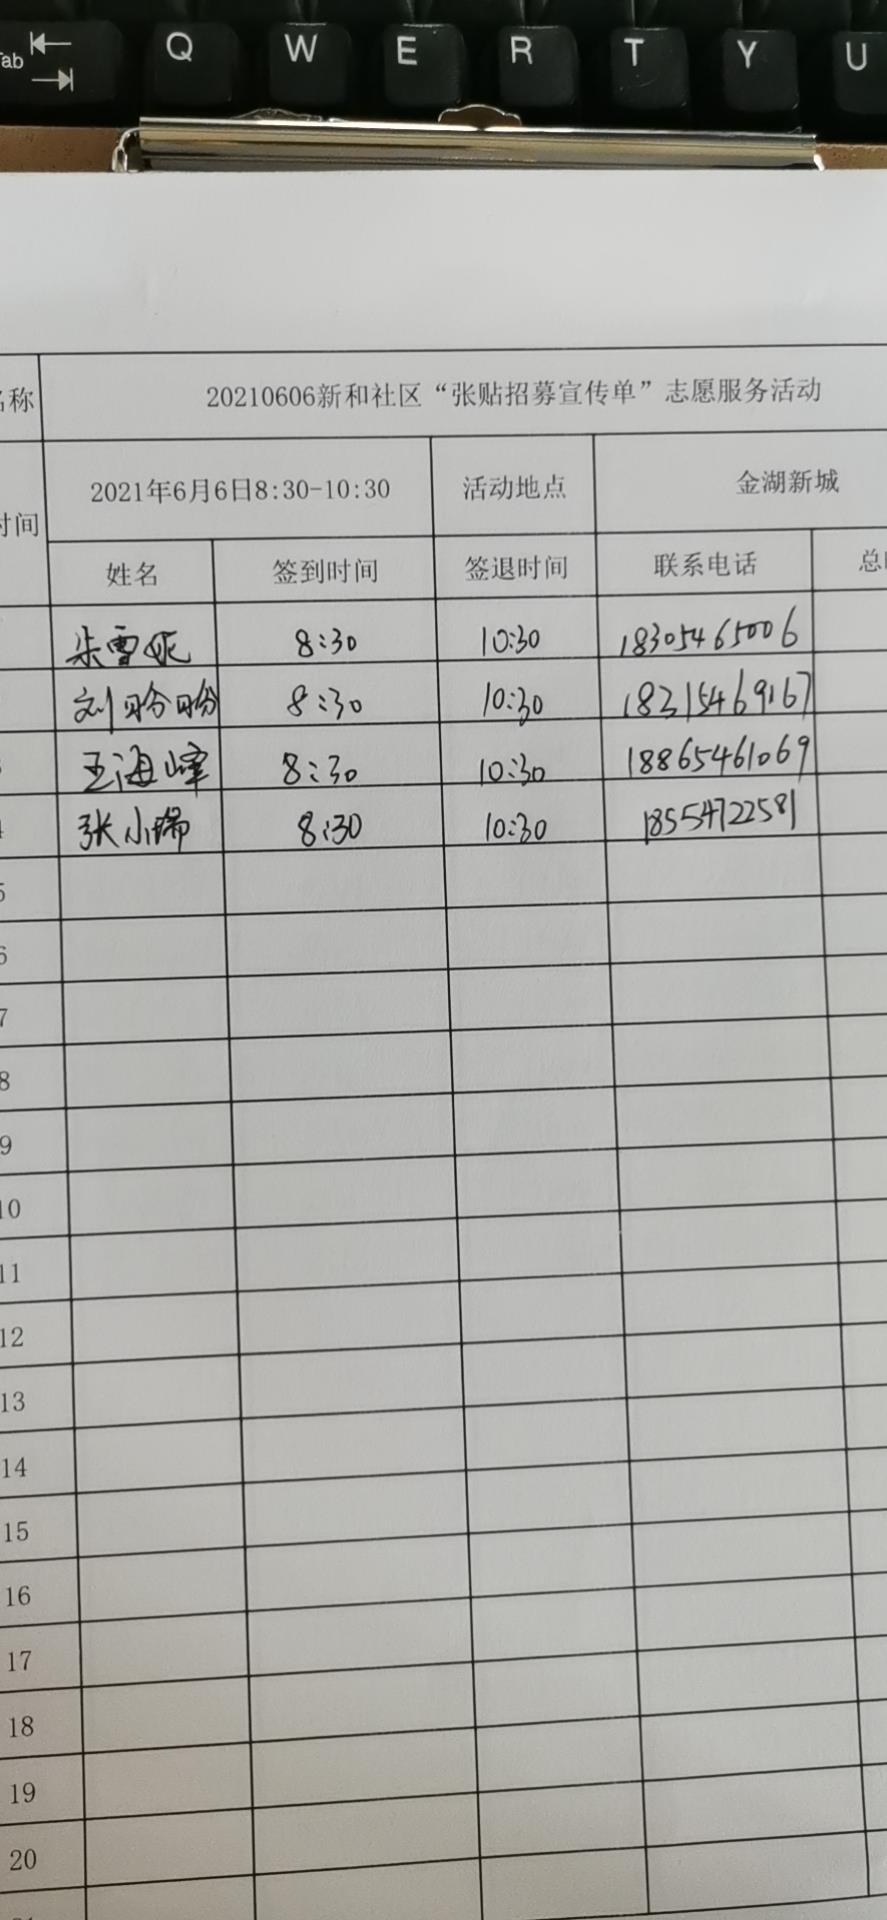 Tab Q W E R T Y U
名称 20210606新和社区“张贴招募宣传单”志愿服务活动
时间 2021年6月6日8:30-10:30 活动地点 金湖新城
姓名 签到时间 签退时间 联系电话 总
朱雪妮 8:30 10:30 18305465006
刘盼盼 8:30 10:30 18215469167
3 王海峰 8:30 10:30 18865461069
4 张小瑞 8:30 10:30 18554722581
5
6
7
8
9
10
11
12
13
14
15
16
17
18
19
20